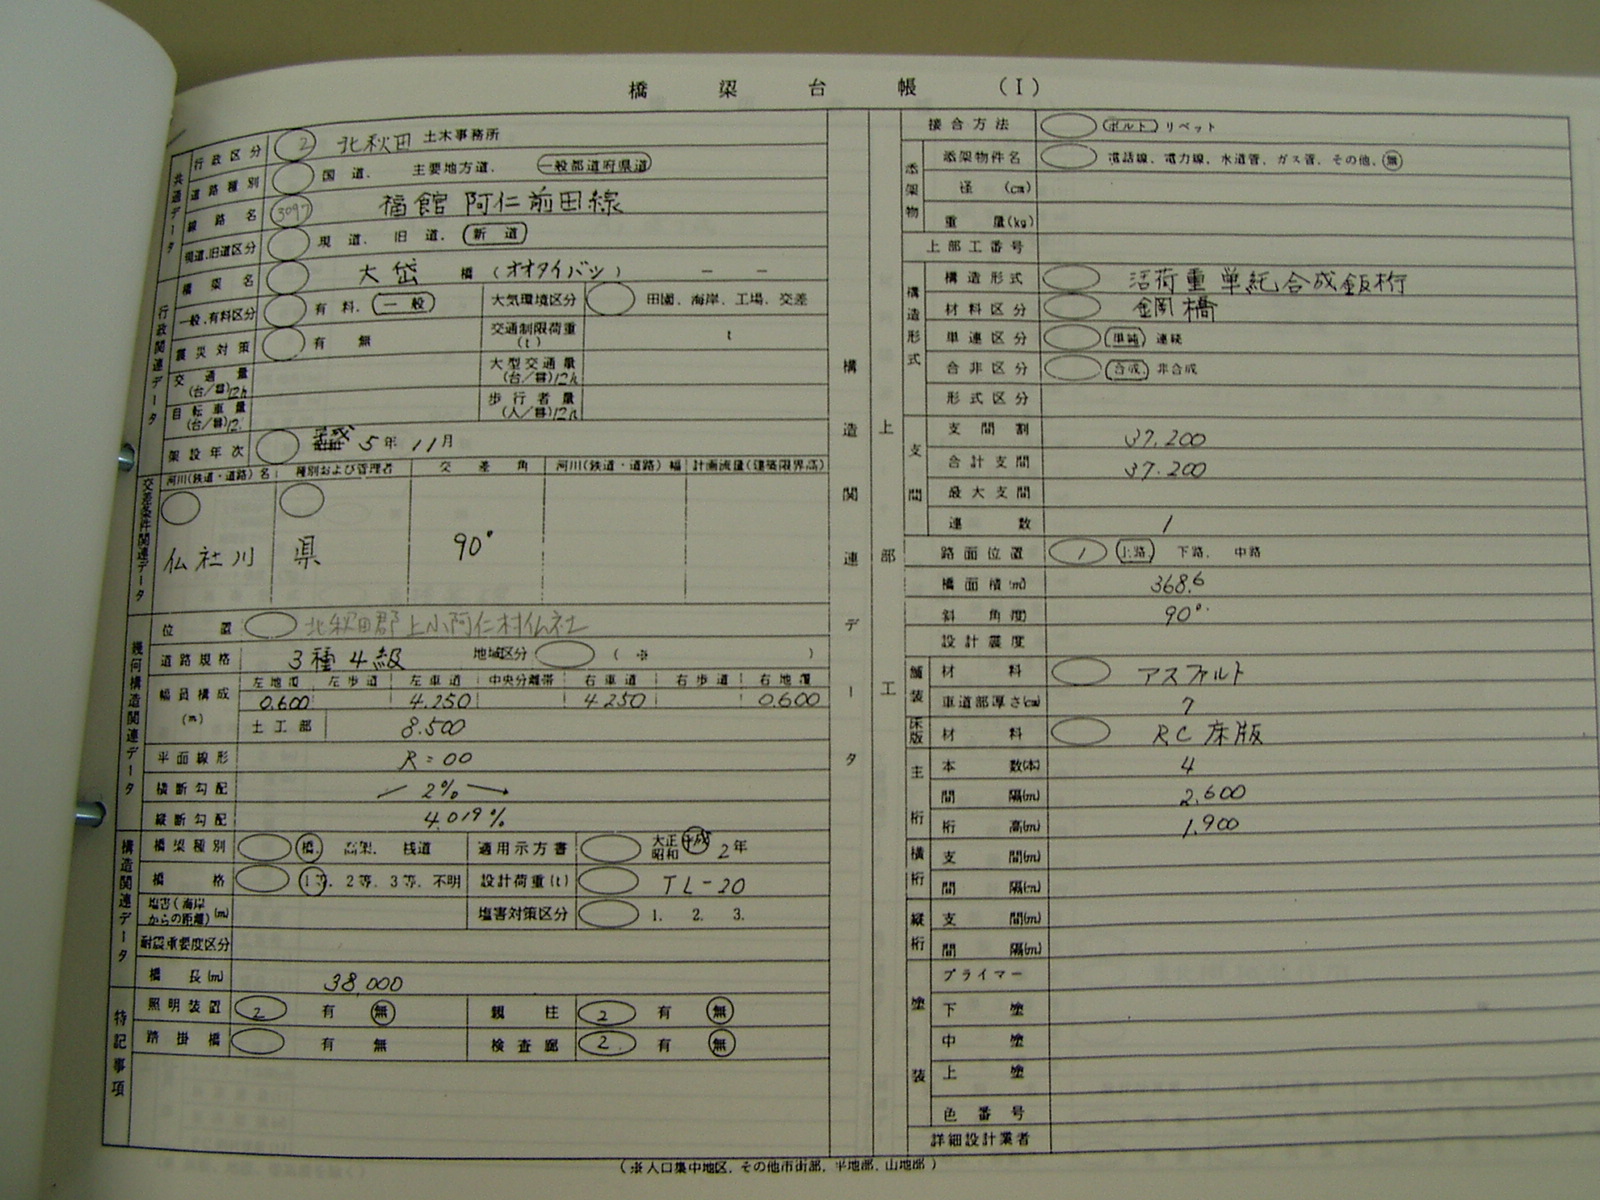 橋梁台帳 (I)
共通データ
行政区分 2 北秋田 土木事務所
道路種別 国道. 主要地方道. 一般都道府県道
線路名 3097 福館阿仁前田線
現道.旧道区分 現道. 旧道. 新道
行政関連データ
橋梁名 大岱 橋 (オオタイバシ) — —
一般.有料区分 有料. 一般 大気環境区分 田園、海岸、工場、交差
震災対策 有 無 交通制限荷重(t) t
交通量(台/昼)12h 大型交通量(台/昼)12h
自転車量(台/昼)12 歩行者量(人/昼)12h
架設年次 5年11月
交差条件関連データ
河川(鉄道・道路)名 種別および管理者 交差角 河川(鉄道・道路)幅 計画流量(建築限界高)
仏社川 県 90°
幾何構造関連データ
位置 北秋田郡上小阿仁村仏社
道路規格 3種4級 地域区分 ( ※ )
幅員構成(m) 左地覆 左歩道 左車道 中央分離帯 右車道 右歩道 右地覆
0.600 4.250 4.250 0.600
土工部 8.500
平面線形 R=00
横断勾配 2%
縦断勾配 4.019%
構造関連データ
橋梁種別 橋. 高架. 桟道 適用示方書 大正 昭和 平成 2年
橋格 1等. 2等. 3等. 不明 設計荷重(t) TL-20
塩害(海岸からの距離)(m) 塩害対策区分 1. 2. 3.
耐震重要度区分
橋長(m) 38,000
特記事項
照明装置 2 有 無 親柱 2 有 無
踏掛橋 有 無 検査廊 2 有 無
構造関連データ
上部工
接合方法 ボルト リベット
添架物
添架物件名 電話線、電力線、水道管、ガス管、その他、無
径 (cm)
重量(kg)
上部工番号
構造形式
構造形式 活荷重単純合成鈑桁
材料区分 鋼橋
単連区分 単純 連続
合非区分 合成. 非合成
形式区分
支間
支間割 37.200
合計支間 37.200
最大支間
連数 1
路面位置 1 上路. 下路. 中路
橋面積(m) 368.6
斜角度 90°
設計震度
舗装
材料 アスファルト
車道部厚さ(cm) 7
床版 材料 RC床版
主桁
本数(本) 4
間隔(m) 2.600
桁高(m) 1.900
横桁
支間(m)
間隔(m)
縦桁
支間(m)
間隔(m)
塗装
プライマー
下塗
中塗
上塗
色番号
詳細設計業者
(※人口集中地区. その他市街部. 平地部. 山地部)